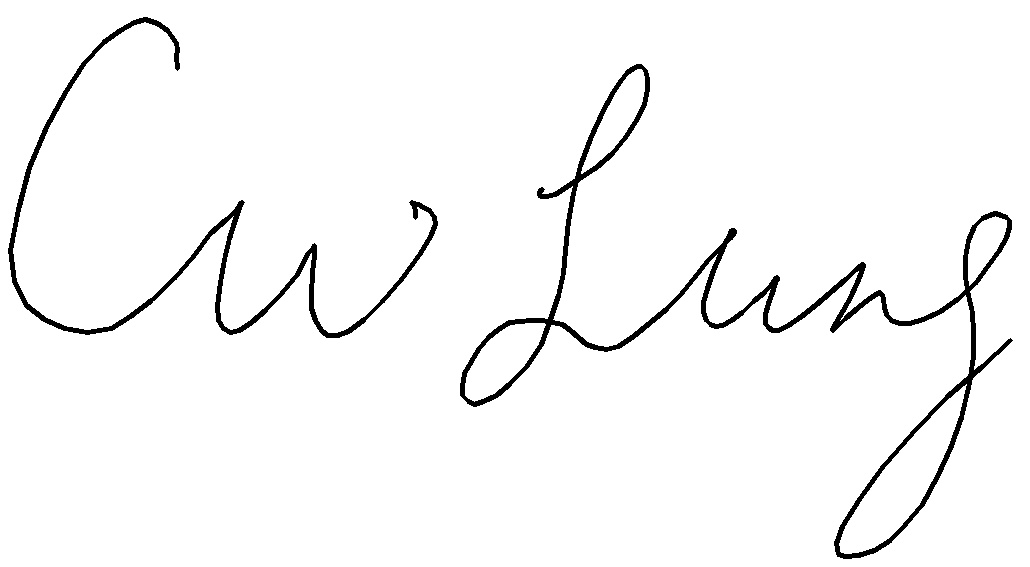 Cw Lung